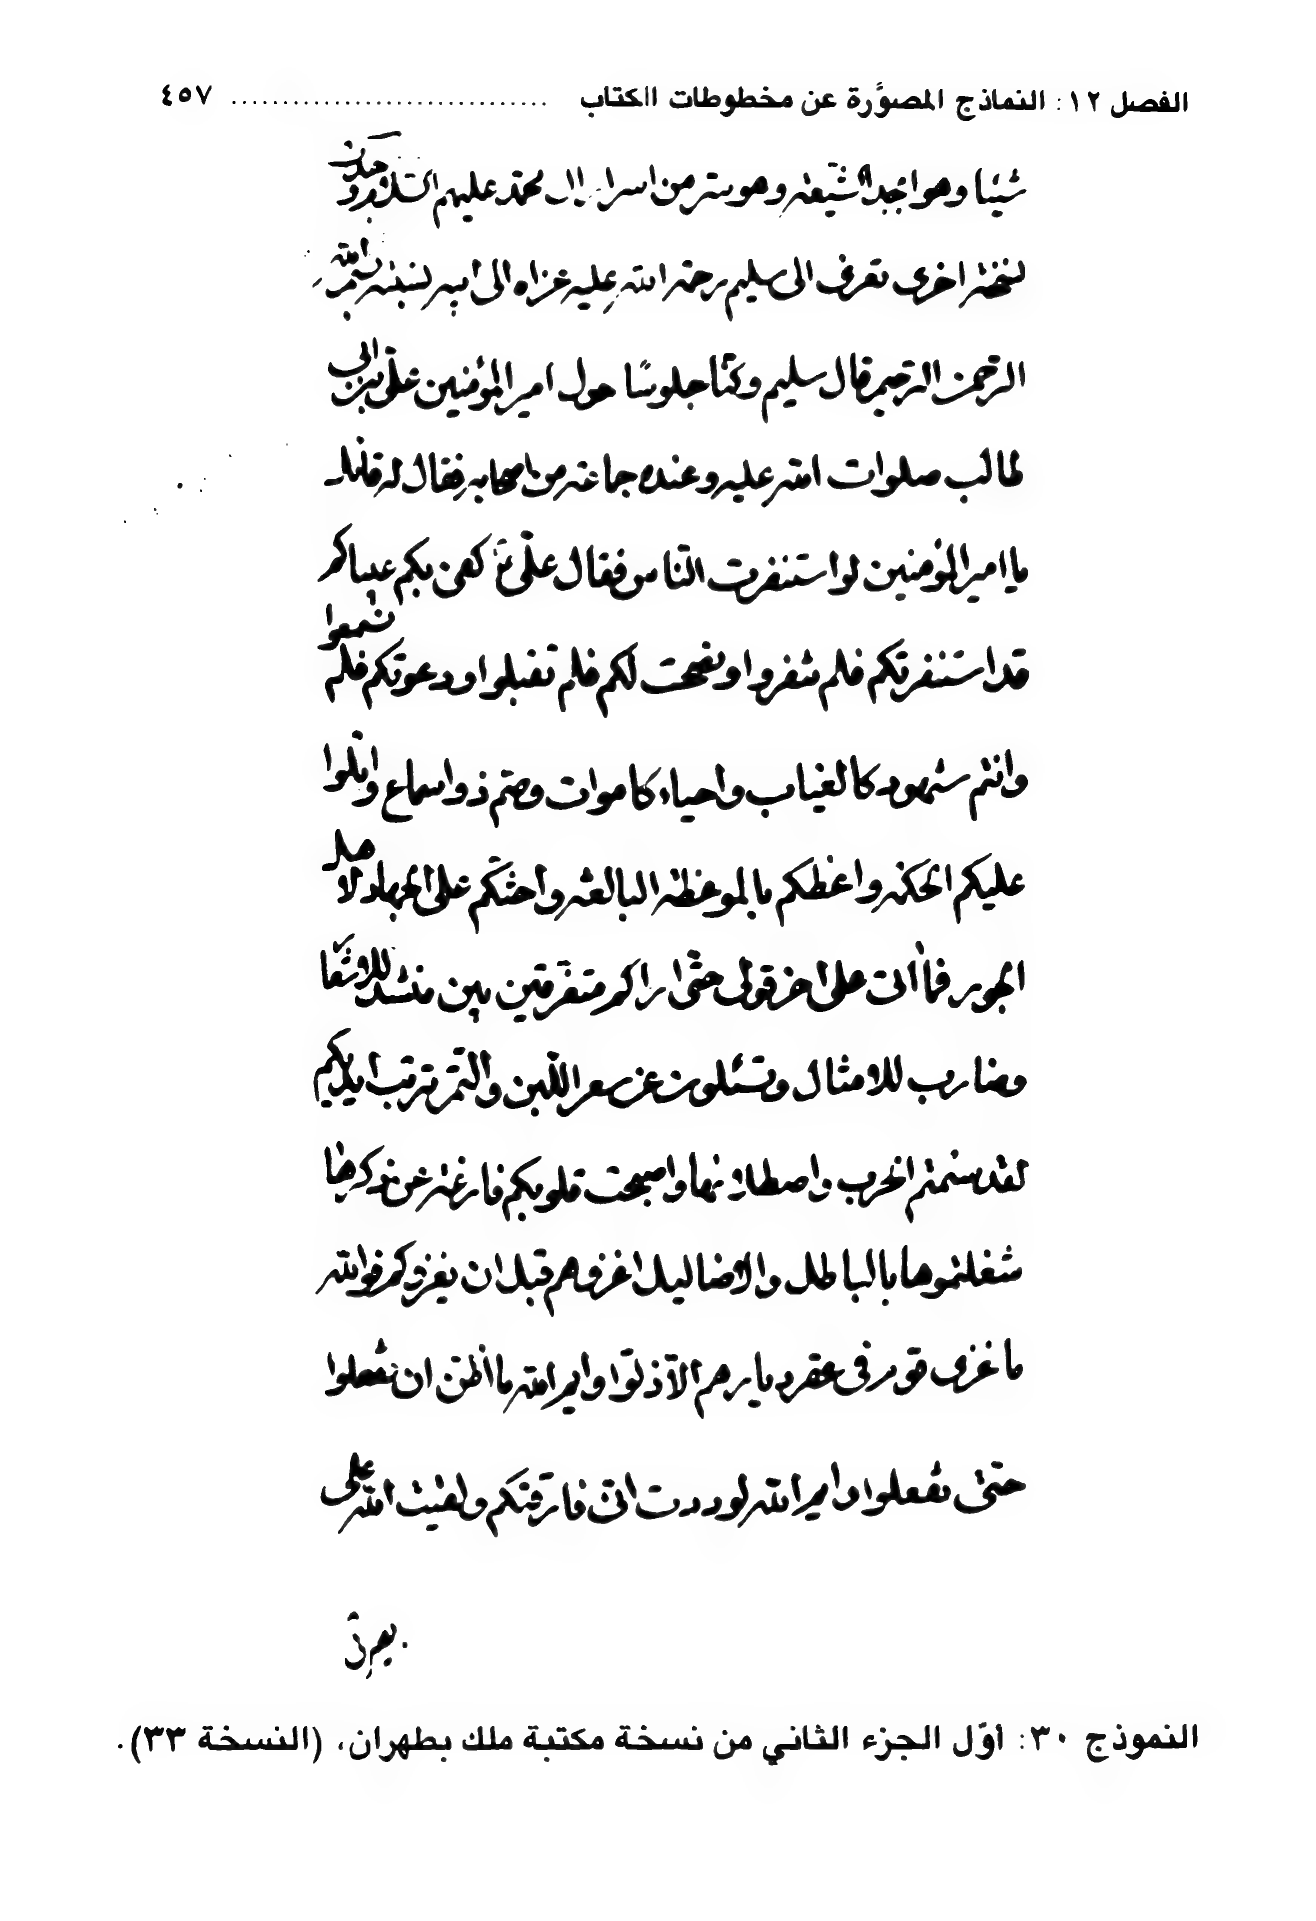 الفصل ١٢: النماذج المصوَّرة عن مخطوطات الكتاب .............................. ٤٥٧
شيئا وهو ابجد الشيعة وهو سر من اسرار ال محمد عليهم السلام وجدت
نسخة اخرى تعزى الى سليم رحمة الله عليه عزاه الى ابيه لسبنه بسم الله
الرحمن الرحيم قال سليم وكنّا جلوسًا حول امير المؤمنين علىّ بن ابى
طالب صلوات الله عليه وعنده جماعة من اصحابه فقال له قائل
يا امير المؤمنين لو استنفرت الناس فقال علىّ ع كفى بكم عيبا كم
قد استنفرتكم فلم تنفروا ونصحت لكم فلم تقبلوا ودعوتكم فلم تسمعوا
وانتم شهود كالغياب واحياء كاموات وصم ذووا سماع واتلوا
عليكم الحكمة واعظكم بالموعظة البالغة واحثّكم على الجهاد لاهل
الجور فما اتى على اخر قولى حتّى اراكم متفرّقين بين منشد للاشعا
وضارب للامثال وتسئلون عن سعر اللّبن والتّمر تربت ايديكم
لقد سئمتم الحرب واصطلاء بها واصبحت قلوبكم فارغة عن ذكرها
شغلتموها بالباطل والاضاليل اغزوهم قبل ان يغزوكم فوالله
ما غزى قوم فى عقر ديارهم الّا ذلّوا وايم الله ما اظنّ ان تفعلوا
حتّى تفعلوا وايم الله لوددت انّى فارقتكم ولقيت الله على
النموذج ٣٠: أوّل الجزء الثاني من نسخة مكتبة ملك بطهران، (النسخة ٣٣).